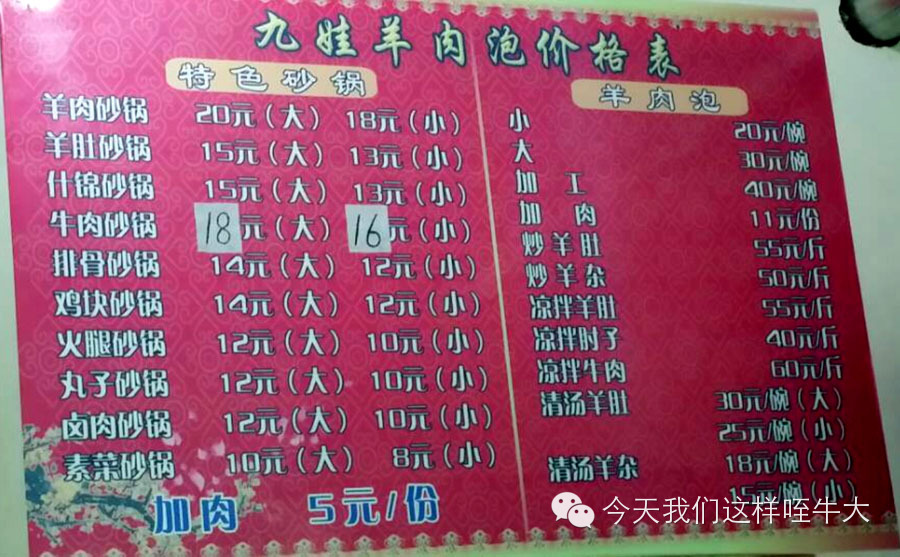 九娃羊肉泡价格表
特色砂锅
羊肉砂锅 20元(大) 18元(小)
羊肚砂锅 15元(大) 13元(小)
什锦砂锅 15元(大) 13元(小)
牛肉砂锅 18元(大) 16元(小)
排骨砂锅 14元(大) 12元(小)
鸡块砂锅 14元(大) 12元(小)
火腿砂锅 12元(大) 10元(小)
丸子砂锅 12元(大) 10元(小)
卤肉砂锅 12元(大) 10元(小)
素菜砂锅 10元(大) 8元(小)
加肉 5元/份
羊肉泡
小 20元/碗
大 30元/碗
加工 40元/碗
加肉 11元/份
炒羊肚 55元/斤
炒羊杂 50元/斤
凉拌羊肚 55元/斤
凉拌肘子 40元/斤
凉拌牛肉 60元/斤
清汤羊肚 30元/碗(大)
25元/碗(小)
清汤羊杂 18元/碗(大)
15元/碗(小)
今天我们这样咥牛大